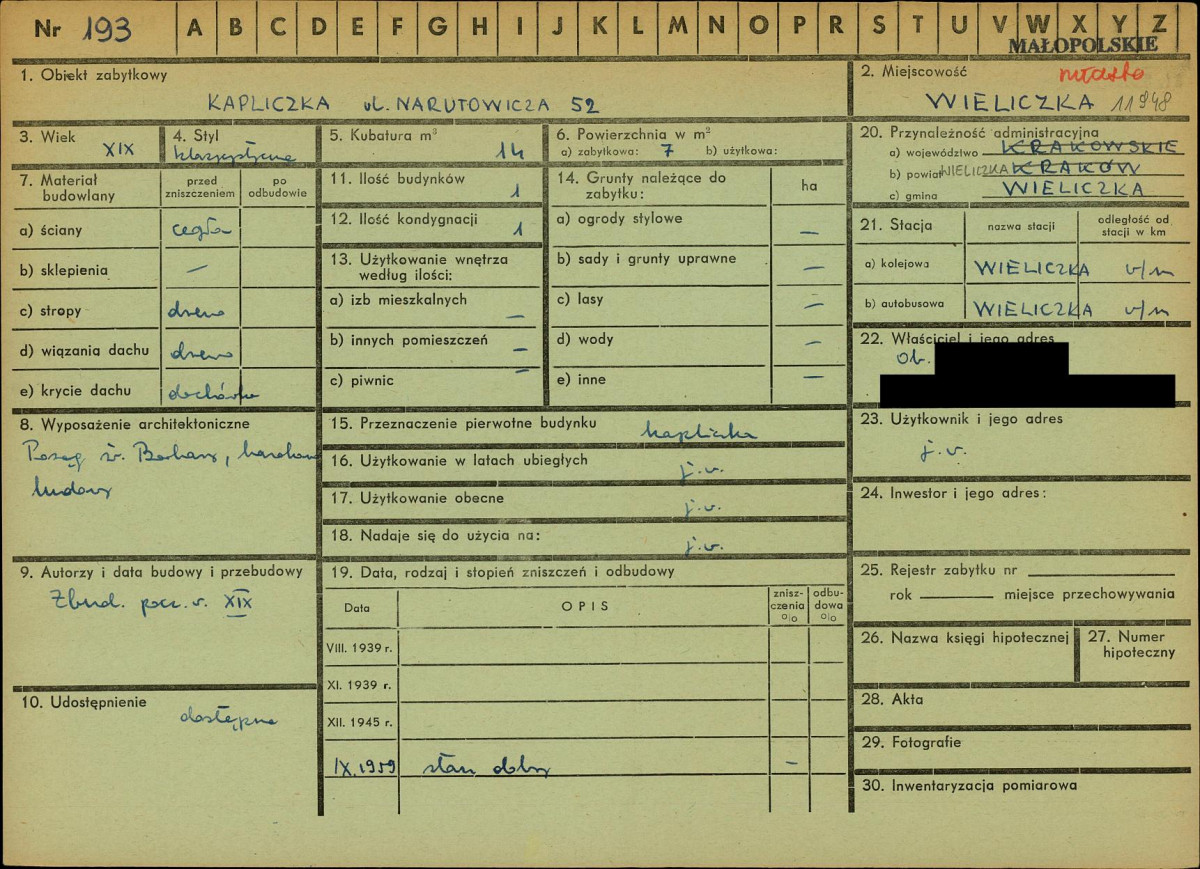 Nr 193 A B C D E F G H I J K L M N O P R S T U V W X Y Z
MAŁOPOLSKIE
1. Obiekt zabytkowy
KAPLICZKA ul. NARUTOWICZA 52
2. Miejscowość miasto
WIELICZKA 11948
3. Wiek
XIX
4. Styl
klasycystyczna
5. Kubatura m³
14
6. Powierzchnia w m²
a) zabytkowa: 7 b) użytkowa:
7. Materiał budowlany
przed zniszczeniem
po odbudowie
a) ściany cegła
b) sklepienia —
c) stropy drewno
d) wiązania dachu drewno
e) krycie dachu dachówka
8. Wyposażenie architektoniczne
Posąg św. Barbary,
ludowy
9. Autorzy i data budowy i przebudowy
Zbud. pocz. w. XIX
10. Udostępnienie
dostępna
11. Ilość budynków 1
12. Ilość kondygnacji 1
13. Użytkowanie wnętrza
według ilości:
a) izb mieszkalnych —
b) innych pomieszczeń —
c) piwnic —
14. Grunty należące do
zabytku:
ha
a) ogrody stylowe —
b) sady i grunty uprawne —
c) lasy —
d) wody —
e) inne —
15. Przeznaczenie pierwotne budynku kapliczka
16. Użytkowanie w latach ubiegłych j.w.
17. Użytkowanie obecne j.w.
18. Nadaje się do użycia na: j.w.
19. Data, rodzaj i stopień zniszczeń i odbudowy
Data OPIS znisz-czenia % odbu-dowa %
VIII. 1939 r.
XI. 1939 r.
XII. 1945 r.
IX. 1959 stan dobry —
20. Przynależność administracyjna
a) województwo KRAKOWSKIE
b) powiat WIELICZKA KRAKÓW
c) gmina WIELICZKA
21. Stacja nazwa stacji odległość od stacji w km
a) kolejowa WIELICZKA w/m
b) autobusowa WIELICZKA w/m
22. Właściciel i jego adres
Ob.
23. Użytkownik i jego adres
j.w.
24. Inwestor i jego adres:
25. Rejestr zabytku nr
rok miejsce przechowywania
26. Nazwa księgi hipotecznej
27. Numer hipoteczny
28. Akta
29. Fotografie
30. Inwentaryzacja pomiarowa